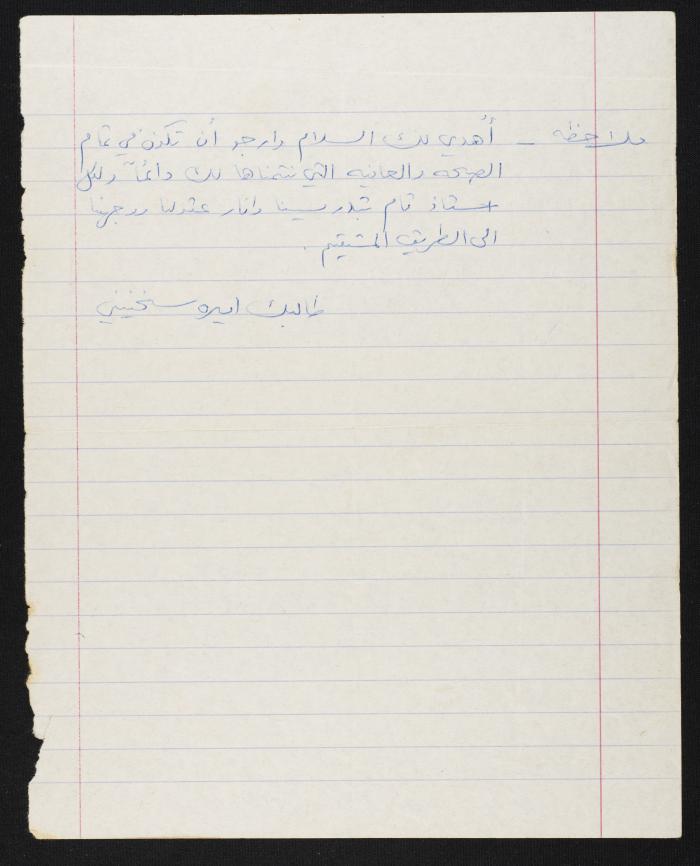 ملاحظه - أُهدي لك السلام وارجو أن تكون في تمام
الصحه والعافيه التي نتمناها لك دائماً ولكل
استاذ قام بتدريسنا وانار عقولنا ووجهنا
الى الطريق المستقيم.
طالبك اميره سخنيني